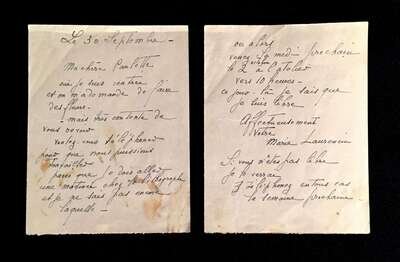 Le 30 Septembre –
Ma chère Paulette
oui je suis rentrée
et on m'a demandé de faire
des fleurs –
mais très contente de
vous revoir
voulez vous téléphoner
pour que nous puissions
travailler
parce que je dois aller
une matinée chez
et je ne sais pas encore
laquelle –
ou alors
venez Samedi prochain
le 2 à l'atelier
vers 10 heures –
ce jour-là je sais que
je suis libre
Affectueusement
Votre
Marie Laurencin
Si vous n'êtes pas libre
je le verrai
Téléphonez en tous cas
la semaine prochaine –